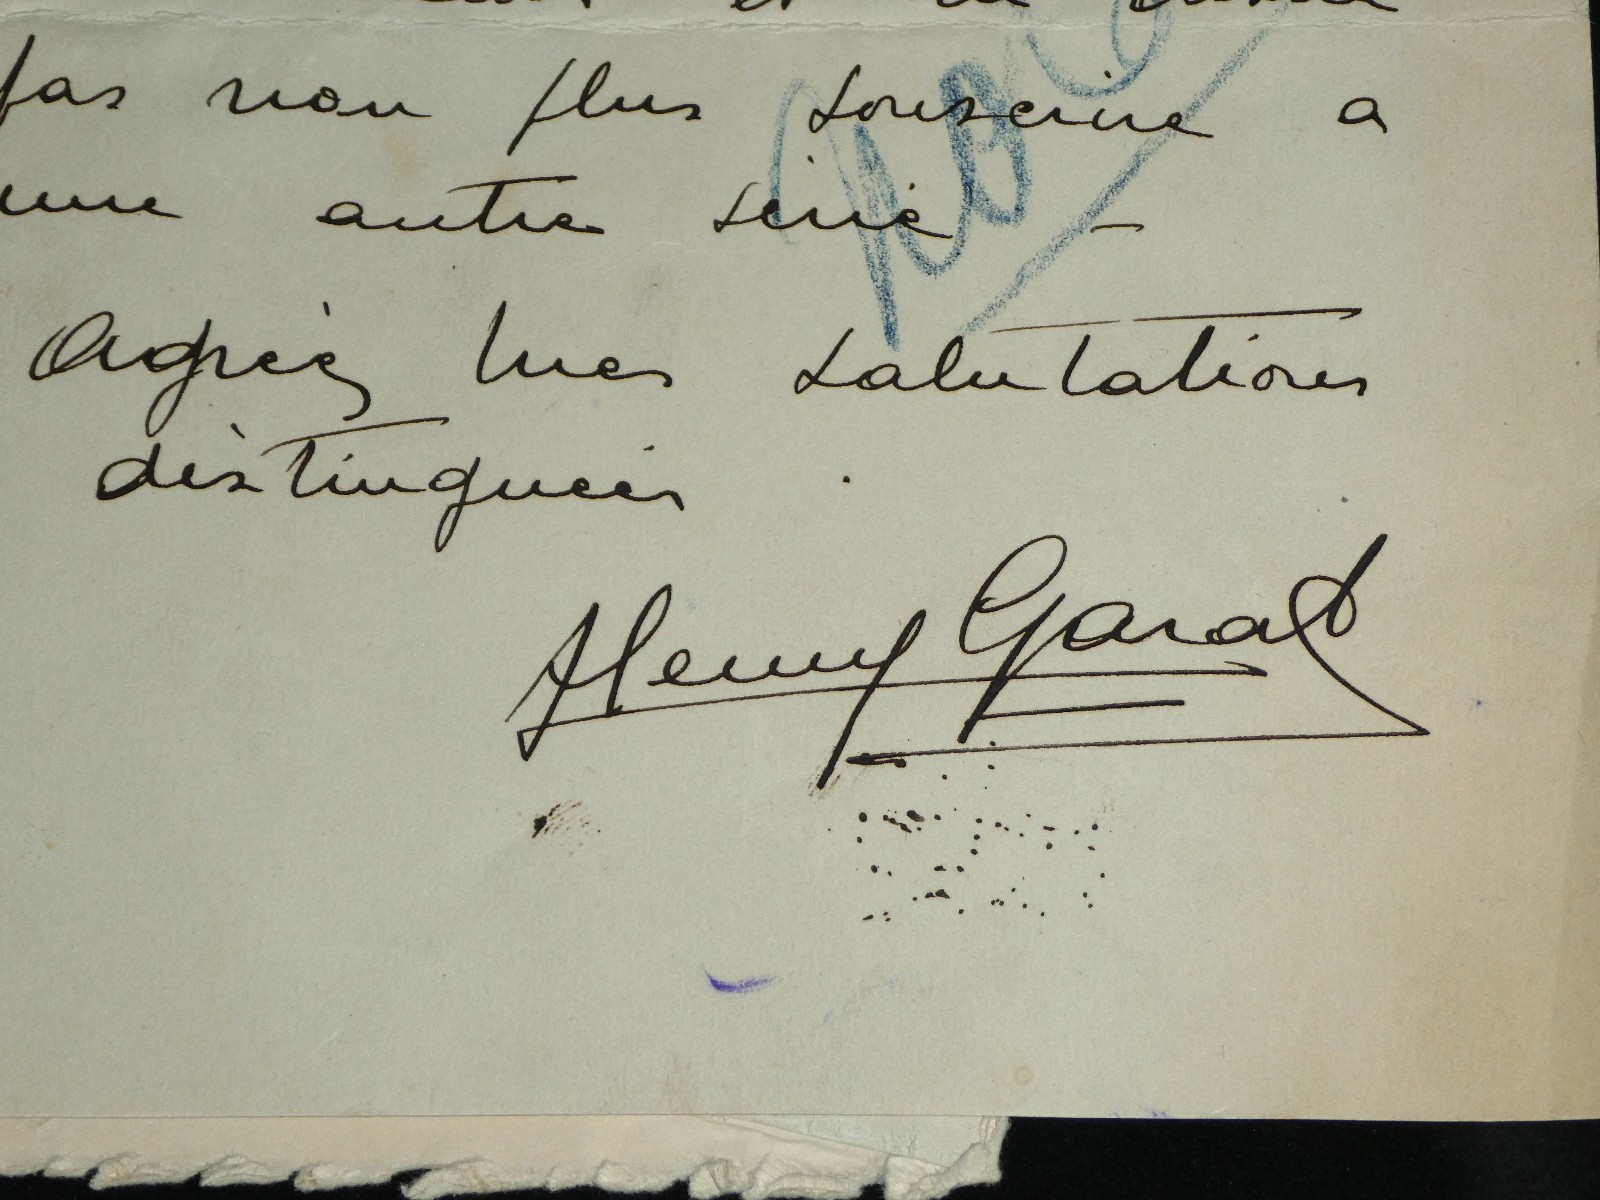 et
pas non plus souscrire a
une autre série –
Agréez mes salutations
distinguées.
Henry Garat